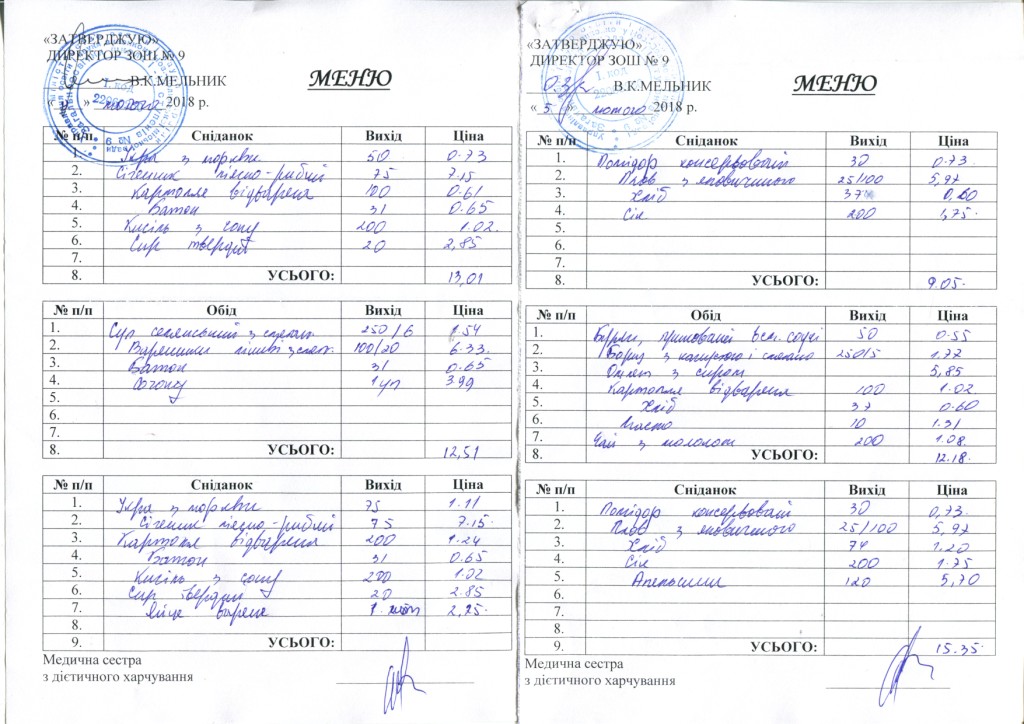 «ЗАТВЕРДЖУЮ»
ДИРЕКТОР ЗОШ № 9
В.К.МЕЛЬНИК
МЕНЮ
« » лютого 2018 р.
№ п/п Сніданок Вихід Ціна
1. Ікра з моркви 50 0.73
2. Січеник м'ясо-рибний 75 7.15
3. Картопля відварена 100 0.61
4. Батон 31 0.65
5. Кисіль з соку 200 1.02
6. Сир твердий 20 2,85
7.
8. УСЬОГО: 13,01
№ п/п Обід Вихід Ціна
1. Суп селянський з 250/6 1.54
2. Вареники 100/20 6.33
3. Батон 31 0.65
4. 1уп 3.99
5.
6.
7.
8. УСЬОГО: 12,51
№ п/п Сніданок Вихід Ціна
1. Ікра з моркви 75 1.11
2. Січеник м'ясо-рибний 75 7.15
3. Картопля відварена 200 1.24
4. Батон 31 0.65
5. Кисіль з соку 200 1.02
6. Сир твердий 20 2.85
7. Яйце варене 1 шт 2,25
8.
9. УСЬОГО:
Медична сестра
з дієтичного харчування
«ЗАТВЕРДЖУЮ»
ДИРЕКТОР ЗОШ № 9
В.К.МЕЛЬНИК
МЕНЮ
« 5 » лютого 2018 р.
№ п/п Сніданок Вихід Ціна
1. Помідор консервований 30 0.73
2. Плов з яловичиною 25/100 5,97
3. Хліб 37 0,60
4. Сік 200 1,75
5.
6.
7.
8. УСЬОГО: 9.05
№ п/п Обід Вихід Ціна
1. Буряк, припований 50 0.55
2. Борщ з капустою і сметаною 250/5 1.77
3. Омлет з сиром 5,85
4. Картопля відварена 100 1.02
5. Хліб 37 0.60
6. Масло 10 1.31
7. Чай з молоком 200 1.08
8. УСЬОГО: 12.18
№ п/п Сніданок Вихід Ціна
1. Помідор консервований 30 0,73
2. Плов з яловичиною 25/100 5,97
3. Хліб 74 1,20
4. Сік 200 1.75
5. Апельсини 120 5,70
6.
7.
8.
9. УСЬОГО: 15.35
Медична сестра
з дієтичного харчування